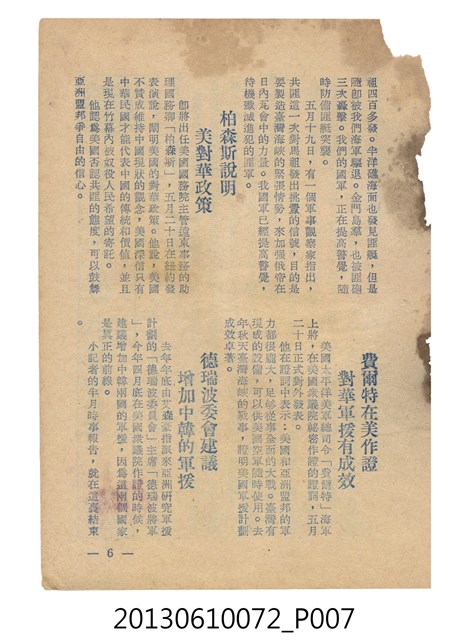 祖四百多發。半洋礁海面也發見匪艇，但是
隨卽被我們海軍驅退。金門島羣，也被匪砲
三次轟擊。我們的國軍，正在提高警覺，隨
時防備匪艇突襲。
五月十九日，有一個軍事觀察家指出，
共匪這一次對馬祖發出挑釁的信號，目的是
要製造臺灣海峽的緊張情勢，來加强俄帝在
日內瓦會中的力量。我國軍已經提高警覺，
待機殲滅進犯的匪軍。
柏森斯說明
美對華政策
卽將出任美國國務院主管遠東事務的助
理國務卿「柏森斯」，五月二十日在紐約發
表演說，闡明美國的對華政策。他說，美國
不贊成維持中國現狀的觀念，美國深信只有
中華民國才能代表中國的傳統和價值，並且
是現在竹幕內被奴役人民希望的寄託。
他認爲美國否認共匪的態度，可以鼓舞
亞洲盟邦爭自由的信心。
費爾特在美作證
對華軍援有成效
美國太平洋美軍總司令「費爾特」海軍
上將，在美國衆議院秘密作證的證詞，五月
二十日正式對外發表。
他在證詞中表示：美國和亞洲盟邦的軍
力都很龐大，足够從事全面的大戰。臺灣有
現成的設備，可以供美國空軍隨時使用。去
年秋天臺灣海峽的戰事，證明美國軍援計劃
成效卓著。
德瑞波委會建議
增加中韓的軍援
去年年底由艾森豪指派來亞洲硏究軍援
計劃的「德瑞波委員會」主席「德瑞波將軍
」，今年四月底在美國衆議院作證的時候，
建議增加中韓兩國的軍援，因爲這兩個國家
是眞正的前線。
小記者的半月時事報告，就在這裏結束
。
— 6 —
20130610072_P007